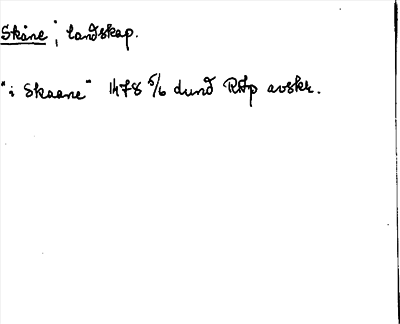 Skåne ; landskap.
"i Skaane" 1478 5/6 dund RAp avskr.